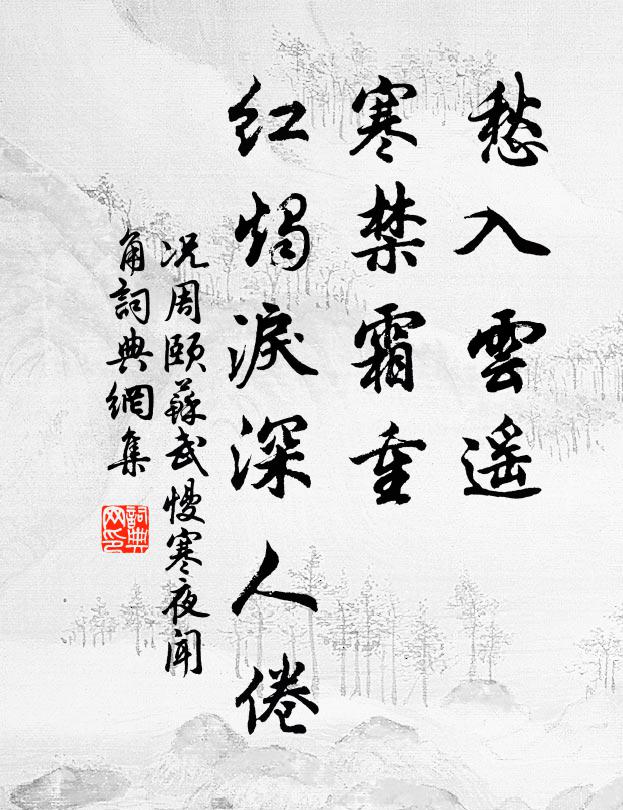 愁入雲遥
寒禁霜重
红燭淚深人倦
况周颐蘇武慢寒夜聞
角詞典網集
詞典
网印